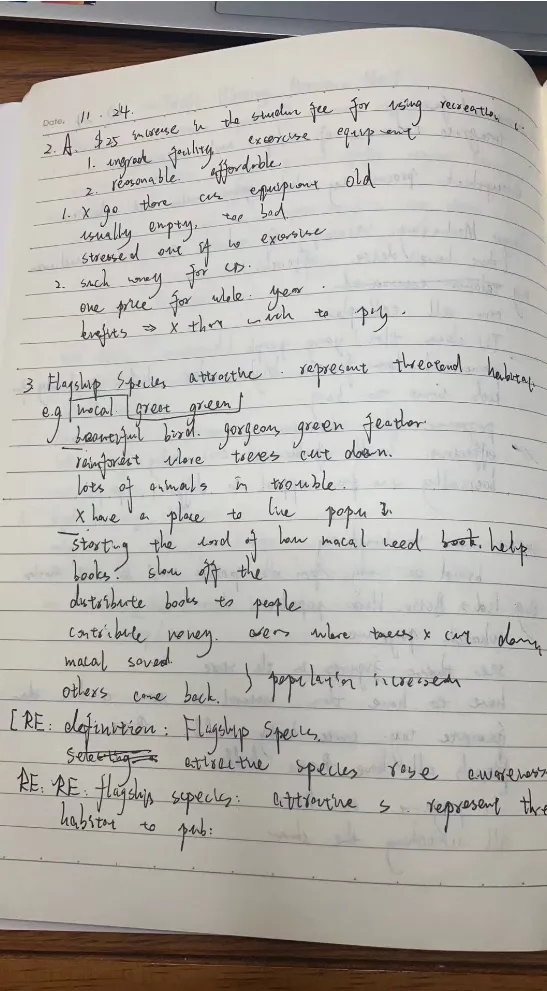 Date. 11. 24.
2. A. $25 increase in the student fee for using recreation
1. ingrade facility exercise equipment
2. reasonable affordable.
1. X go there cus equipment old
usually empty, too bad
stressed out if no exercise
2. such money for
one price for whole year.
benefits ⇒ X that much to pay.
3 Flagship Species attractive. represent threatend habitat.
e.g macal great green
beautiful bird. gorgeous green feather
rainforest where trees cut down.
lots of animals in trouble.
X have a place to live popu
starting the word of how macal need help
books. show off the
distribute books to people
contribute money. areas where trees X cut down
macal saved.
others come back. } population increased
[RE: definition: Flagship Species.
attractive species rose awareness
RE: RE: flagship species: attractive s. represent thre
habitat to pub: